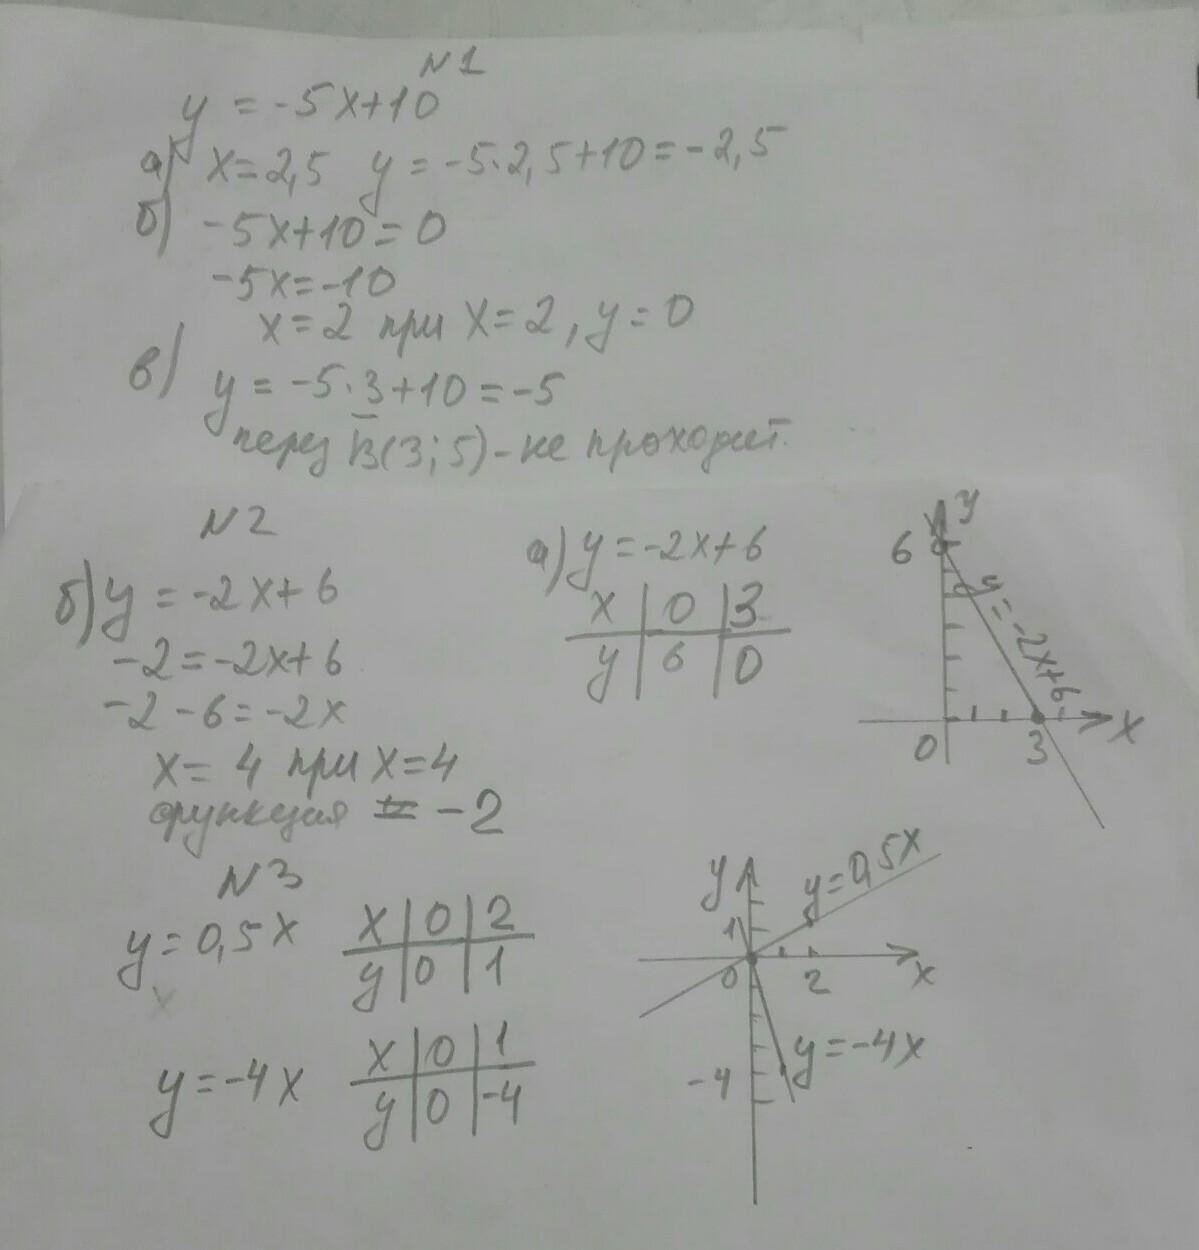 N1
y = -5x+10
а) x=2,5 y = -5·2,5+10=-2,5
б) -5x+10=0
-5x=-10
x=2 при x=2, y=0
в) y = -5·3+10=-5
через B(3;5)-не проходит.
N2
б) y = -2x+6
-2=-2x+6
-2-6=-2x
x= 4 при x=4
функция = -2
а) y=-2x+6
x 0 3
y 6 0
y
6
y=-2x+6
0 3 x
N3
y=0,5x
x 0 2
y 0 1
y=-4x
x 0 1
y 0 -4
y
y=0,5x
1
0 2 x
y=-4x
-4